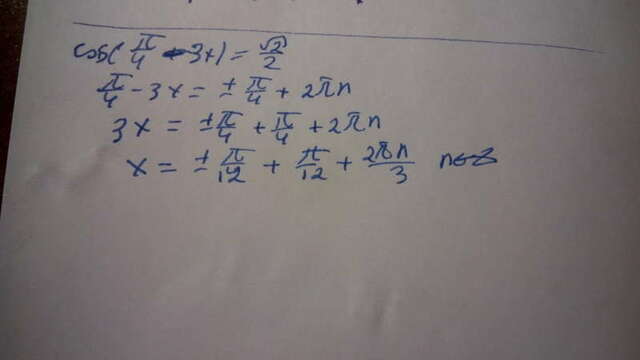 cos(π/4 - 3x) = √2/2
π/4 - 3x = ± π/4 + 2πn
3x = ± π/4 + π/4 + 2πn
x = ± π/12 + π/12 + 2πn/3 n∈Z